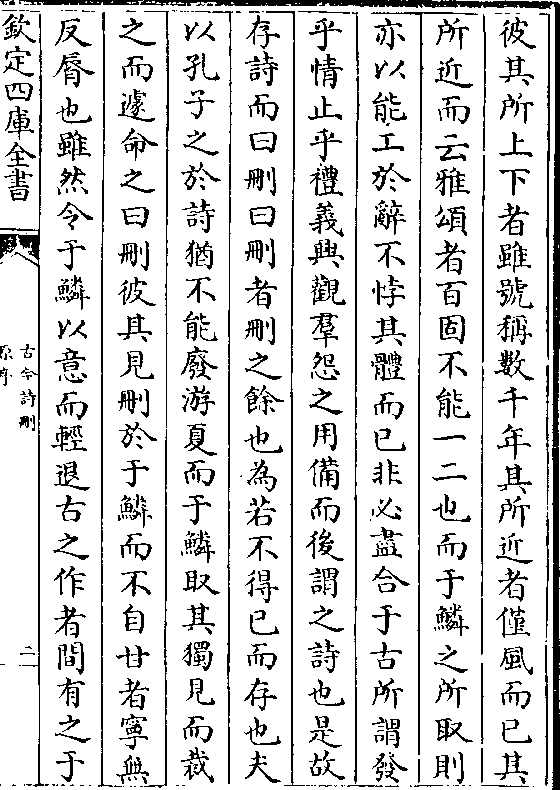 彼其所上下者雖號稱數千年其所近者僅風而已其
所近而云雅頌者百固不能一二也而于鱗之所取則
亦以能工於辭不悖其體而已非必盡合于古所謂發
乎情止乎禮義興觀羣怨之用備而後謂之詩也是故
存詩而曰刪曰刪者刪之餘也為若不得已而存也夫
以孔子之於詩猶不能廢游夏而于鱗取其獨見而裁
之而遽命之曰刪彼其見刪於于鱗而不自甘者寧無
反脣也雖然令于鱗以意而輕退古之作者間有之于
欽定四庫全書
古今詩刪
原序
二